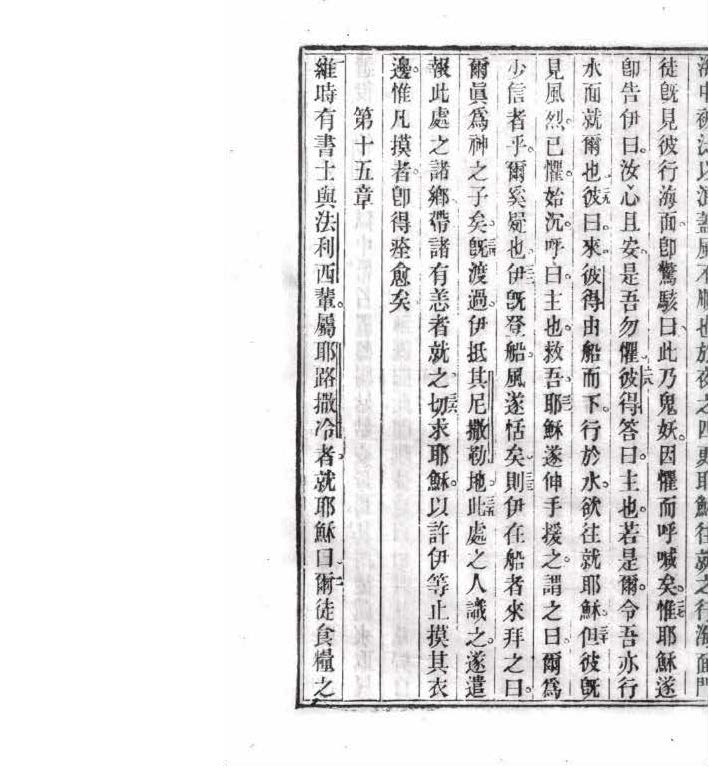 風不順也於夜之四更耶穌往就之行海面門
徒旣見彼行海面、卽驚駭曰、此乃鬼妖。因懼而呼喊矣。惟耶穌遂
卽告伊曰、汝心且安、是吾勿懼。彼得答曰、主也。若是爾、令吾亦行
水面就爾也。彼曰、來。彼得由船而下。行於水、欲往就耶穌。但彼旣
見風烈、已懼。始沉。呼曰、主也。救吾、耶穌遂伸手援之。謂之曰、爾爲
少信者乎。爾奚疑也。伊旣登船。風遂恬矣、則伊在船者來拜之曰。
爾眞爲神之子矣。旣渡過、伊抵其尼撒勒地。此處之人識之。遂遣
報此處之諸鄉、帶諸有恙者就之、切求耶穌。以許伊等止摸其衣
邊。惟凡摸者。卽得痊愈矣
第十五章
維時有書士與法利西輩。屬耶路撒冷者。就耶穌曰、爾徒食糧之